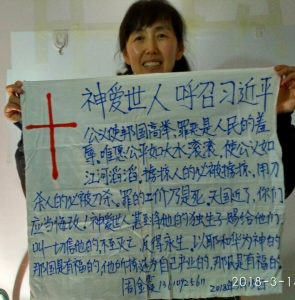 神爱世人 呼召习近平
公义使邦国高举,罪恶是人民的羞
辱,唯愿公平如大水滚滚,使公义如
江河滔滔,掳掠人的必被掳掠,用刀
杀人的必被刀杀。罪的工价乃是死,天国近了,你们
应当悔改,神爱世人甚至将他的独生子赐给他们
叫一切信他的不至灭亡,反得永生,以耶和华为神的
那国是有福的,他所拣选为自己产业的,那民是有福的
周金霞
2018-3-1